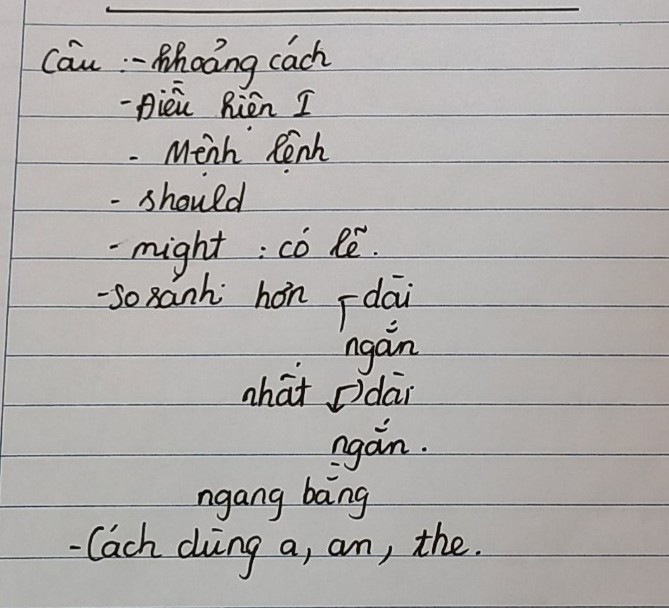 Câu :- khoảng cách
- Điều kiện I
- Mệnh lệnh
- should
- might : có lẽ.
- So sánh: hơn dài
ngắn
nhất dài
ngắn.
ngang bằng
- Cách dùng a, an, the.